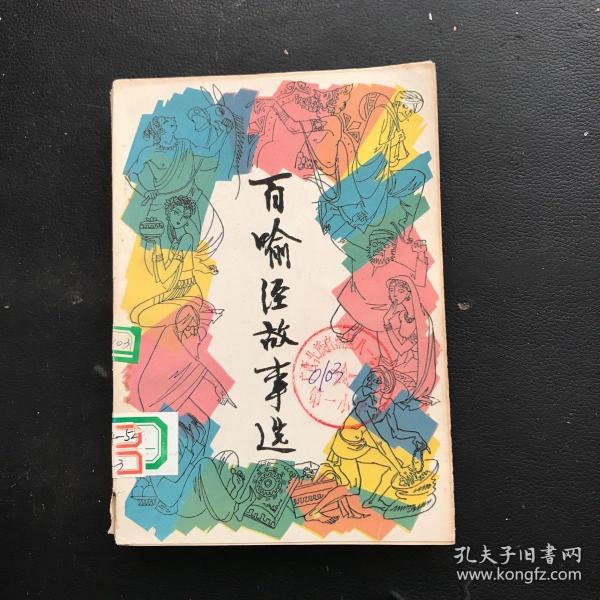 百喻经故事选
0103
103
-52
3
孔夫子旧书网
www.kongfz.com